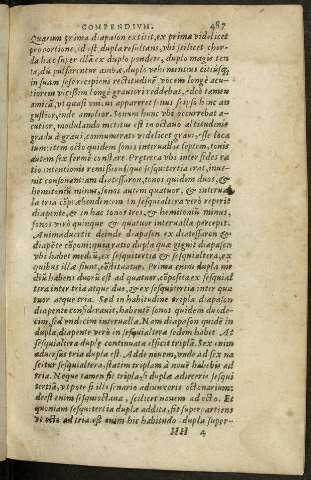 COMPENDIVM. 487
Quarum prima diapason extitit, ex prima videlicet
proportione, id est dupla resultans, vbi scilicet chor-
da hæc super illā ex duplo pondere, duplo magis ten
ta, dū pulsarentur ambæ, duplo vehementius citiúsq;
in suam se se recipiens rectitudinē vocem longè acu-
tiorem vicissim longè grauiori reddebat,
amicā, vt quasi vni, ni appareret sinus seipso hinc an
gustior, inde amplior. Sonum hunc vbi occurrebat a-
cutior, modulando metitus est in octauo altitudinis
gradu à graui, connumerato videlicet graui, esse loca
tum: item octo quidem sonis interualla septem, tonis
autem sex fermè constare. Prætereà vbi inter fides ra
tio intentionis remissionisque sesquitertia erat, inue-
nit consonantiam diatessaron, tonos quidem duos, &
hemitoniū minus, sonos autem quatuor, & interual
la tria cōprehendentem: in sesquialtera verò reperit
diapente, & in hac tonos tres, & hemitonium minus,
sonos verò quinque & quatuor interualla percepit.
Animaduertit deinde diapason ex diatessaron &
diapēte cōponi: quia ratio dupla quæ gignit diapason
vbi habet mediū, ex sesquitertia & sesquialtera, ex
quibus illa fiunt, cōstituatur. Prima enim dupla me
diū habens duorū est ad quatuor, cōposita ex sesquial
tera inter tria atque duo, & ex sesquitertia inter qua
tuor atque tria. Sed in habitudine tripla diapason
diapente considerauit, habentē sonos quidem duode-
cim, sed vndecim interualla. Nam diapason quidē in
dupla, diapente verò in sesquialtera sedem habet. At
sesquialtera duplę continuata efficit triplā. Sex enim
aduersus tria dupla est. Adde nouem, vnde ad sex na
scitur sesquialtera, statim triplam à nouē habebis ad
tria. Neque tamen fit tripla, si duplæ adieceris sesqui
tertiā, vt pote si illi senario adiunxeris octonarium:
deest enim sesquioctaua, scilicet nouem ad octo. Et
quoniam sesquitertia duplæ addita, fit superpartiens
vt octo ad tria, est enim hic habitudo dupla super-
HH 4